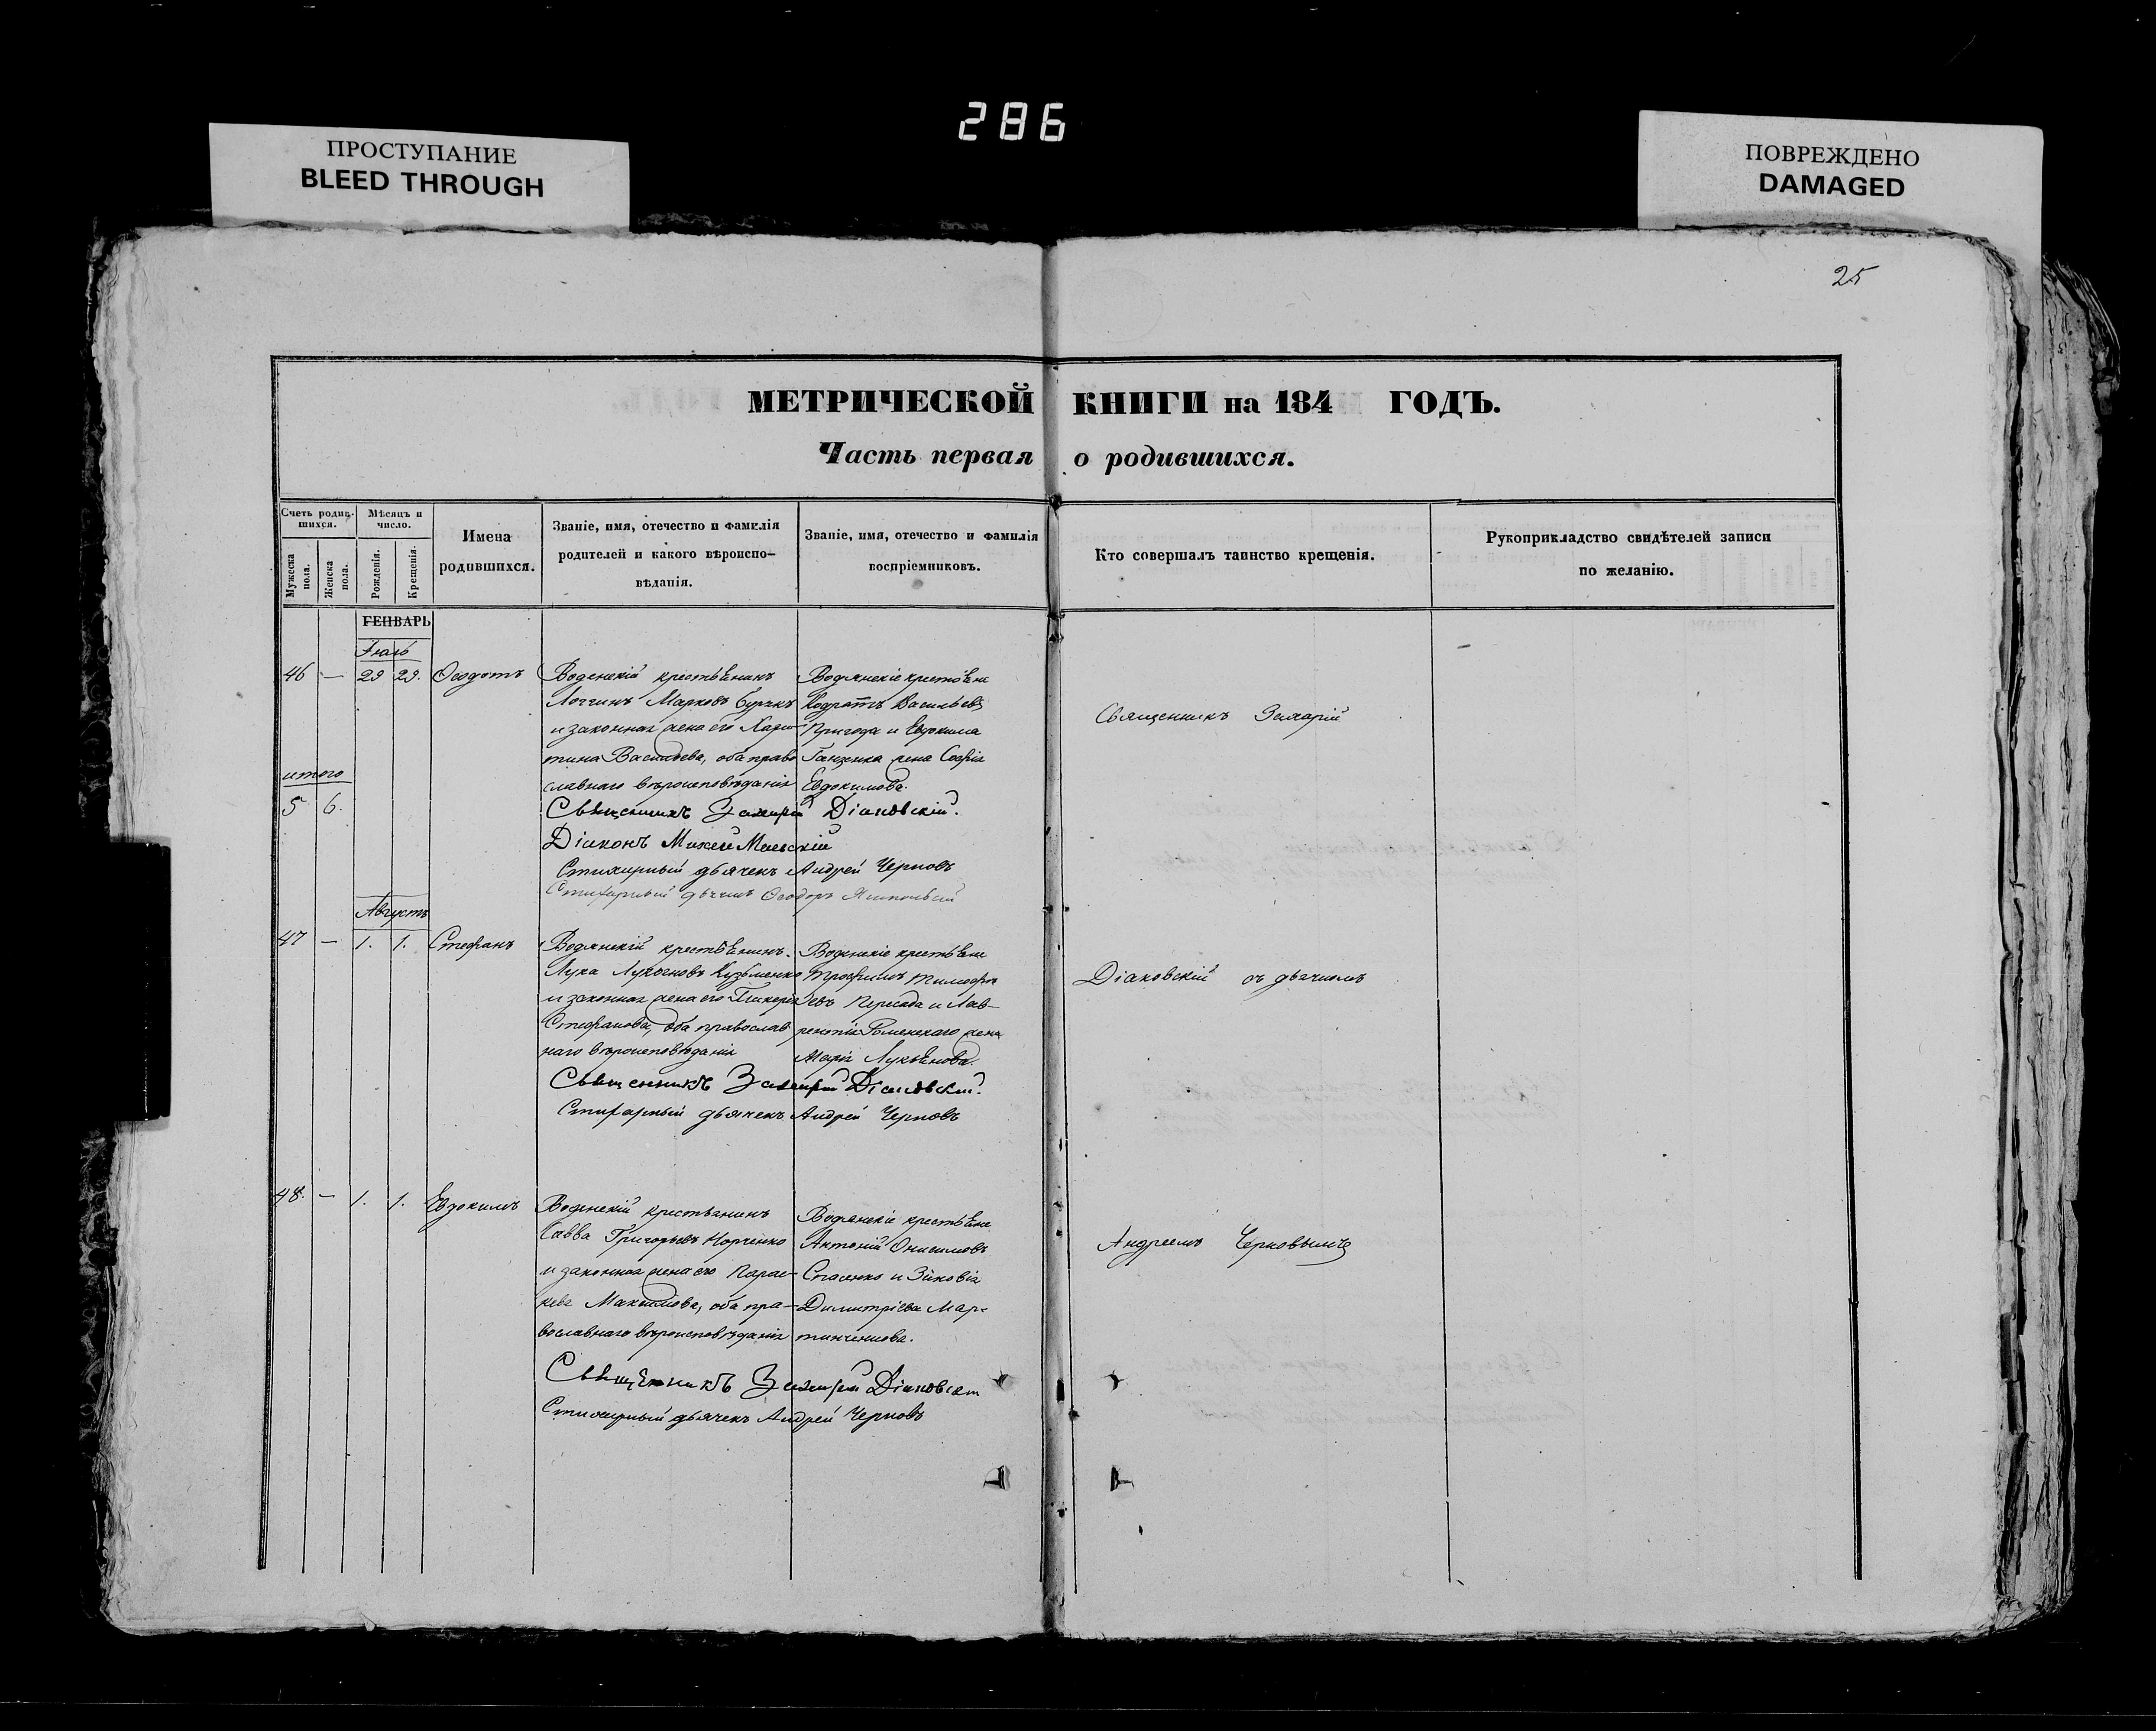 286
ПРОСТУПАНИЕ
BLEED THROUGH
ПОВРЕЖДЕНО
DAMAGED
25
МЕТРИЧЕСКОЙ КНИГИ на 184 ГОДЪ.
Часть первая о родившихся.
Счетъ родив-
шихся.
Мѣсяцъ и
число.
Мужеска
пола.
Женска
пола.
Рожденія.
Крещенія.
Имена
родившихся.
Званіе, имя, отечество и фамилія
родителей и какого вѣроиспо-
вѣданія.
Званіе, имя, отечество и фамилія
воспріемниковъ.
Кто совершалъ таинство крещенія.
Рукоприкладство свидѣтелей записи
по желанію.
ГЕНВАРЬ
Іюль
46 — 29 29. Ѳеодотъ
Водянскій крестьянинъ
Логгинъ Марковъ
и законная жена его Хари-
тина Васильева, оба право
славнаго вѣроисповѣданія
Водянскіе крестьяне
Кодратъ Васильевъ
Пригода и Евдокима
Ганзенка жена Софія
Евдокимова.
Священникъ Захарій
итого
5 6.
Священникъ Захарій Діаковскій.
Діаконъ
Стихарный дьячекъ Андрей Черновъ
Стихарный Ѳеодоръ
Августъ
47 — 1. 1. Стефанъ
Водянскій крестьянинъ
Лука Лукьяновъ Кузьменко
и законная жена его Гликерія
Стефанова, оба православ
наго вѣроисповѣданія
Водянскіе крестьяне
Трофимъ Тимофе
евъ Пересада и Лав-
рентія Роменскаго жена
Марія Лукьянова.
Діаковскій съ дьячкомъ
Священникъ Захарій Діаковскій.
Стихарный дьячекъ Андрей Черновъ
48. — 1. 1. Евдокимъ
Водянскій крестьянинъ
Савва Григорьевъ Корченко
и законная жена его Парас-
кева Максимова, оба пра-
вославнаго вѣроисповѣданія
Водянскіе крестьяне
Антоній Онисимовъ
Стасенко и Зиновія
Димитріева Мар-
тинченкова.
Андреемъ Черновымъ
Священникъ Захарій Діаковскій
Стихарный дьячекъ Андрей Черновъ